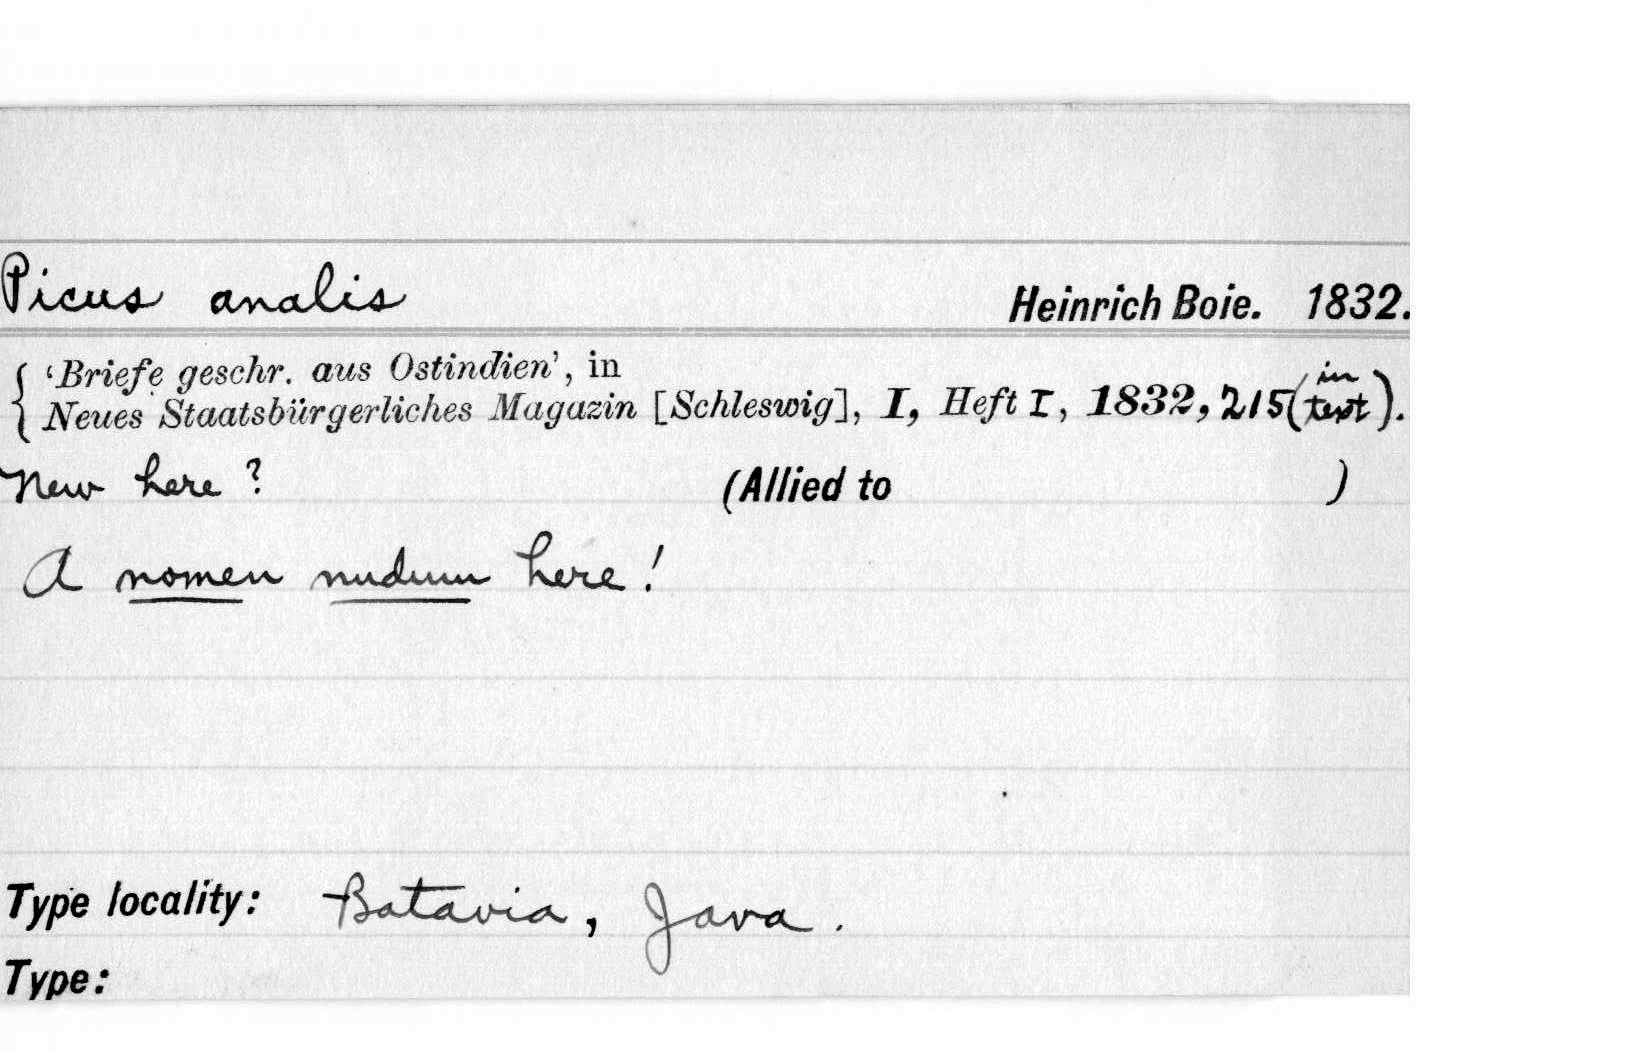 Picus analis Heinrich Boie. 1832.
{ 'Briefe geschr. aus Ostindien', in
Neues Staatsbürgerliches Magazin [Schleswig], I, Heft I, 1832, 215 (in text).
New here? (Allied to )
A nomen nudum here!
Type locality: Batavia, Java.
Type: